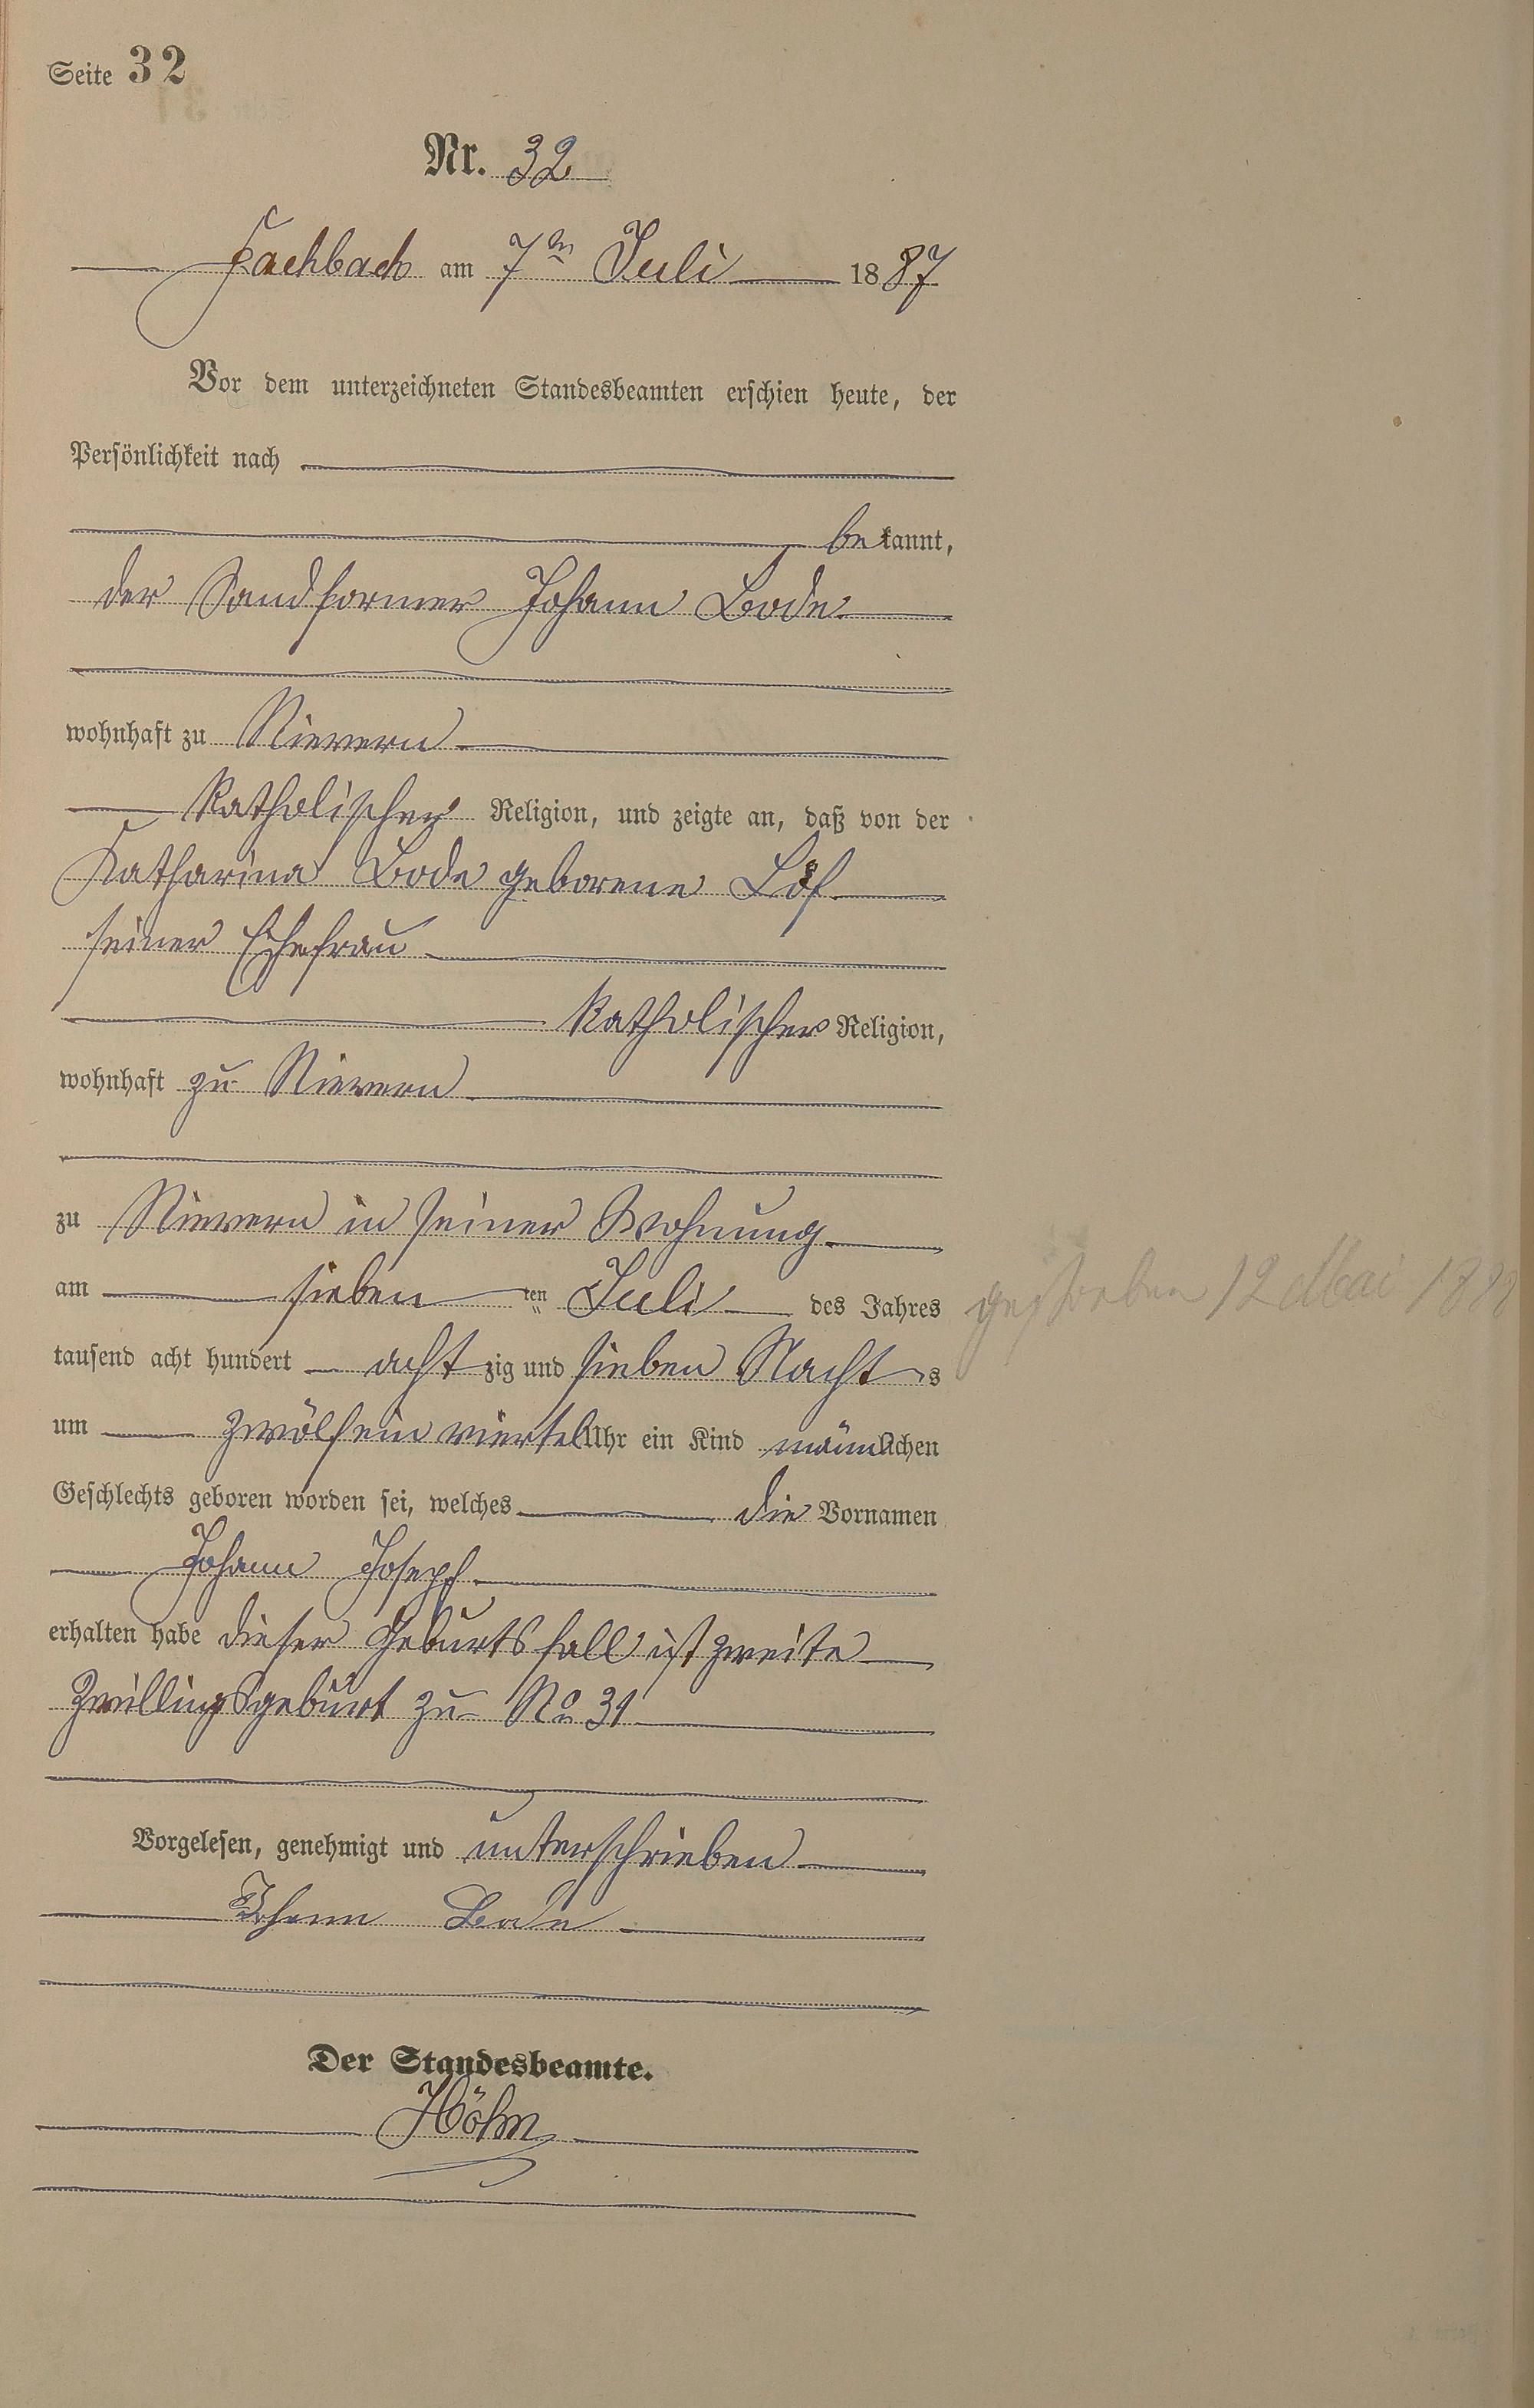 Seite 32
Nr. 32
Fachbach am 7ten Juli 1887
Vor dem unterzeichneten Standesbeamten erschien heute, der
Persönlichkeit nach
bekannt,
der Sandformer Johann Bode
wohnhaft zu Nievern
katholischer Religion, und zeigte an, daß von der
Katharina Bode geborene Löf
seiner Ehefrau
katholischer Religion,
wohnhaft zu Nievern
zu Nievern in seiner Wohnung
am sieben ten Juli des Jahres
gestorben 12 Mai 1888
tausend acht hundert achtzig und sieben Nachts
um zwölf ein viertel Uhr ein Kind männlichen
Geschlechts geboren worden sei, welches die Vornamen
Johann Joseph
erhalten habe dieser Geburtsfall ist zweite
Zwillingsgeburt zu No 31
Vorgelesen, genehmigt und unterschrieben
Johann Bode
Der Standesbeamte.
Höhn